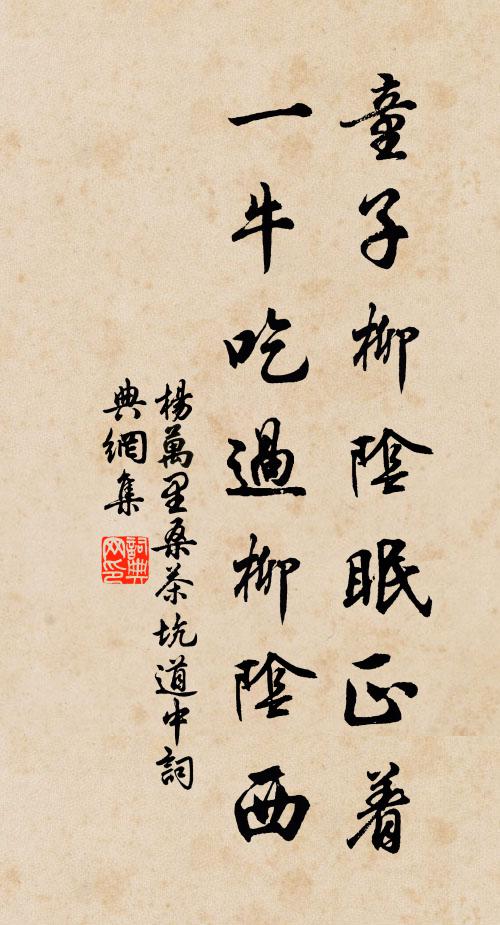 童子柳陰眠正着
一牛吃過柳陰西
楊萬里桑茶坑道中詞
典網集
詞典
网印